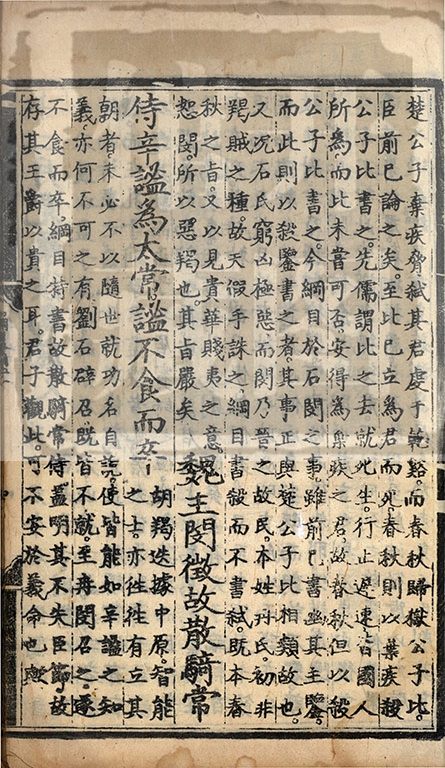 楚公子棄疾脅弒其君虔于乾谿。而春秋歸獄公子比。
臣前已論之矣。至此已立爲君而死。春秋則以棄疾殺
公子比書之。先儒謂比之去就死生。行止遲速。皆國人
所爲。而比未嘗可否。安得爲棄疾之君。故春秋但以殺
公子比書之。今綱目於石閔之事。雖前已書幽其主鑒。
而此則以殺鑒書之者。其事正與楚公子比相類故也。
又况石氏窮凶極惡而閔乃晉之故民。本姓冉氏。初非
羯賊之種。故天假手誅之。綱目書殺而不書弒。既本春
秋之旨。又以見貴華賤夷之意。
恕閔。所以惡羯也。其旨嚴矣
魏王閔徵故散騎常
侍辛謐爲太常。謐不食而卒
胡羯迭據中原。智能
之士。亦徃徃有立其
朝者。未必不以隨世就功名自詭。使皆能如辛謐之知
義。亦何不可之有。劉石辟召。既皆不就。至冉閔召之。遂
不食而卒。綱目特書故散騎常侍。蓋明其不失臣節。故
存其王爵以貴之耳。君子觀此。可不安於義命也歟